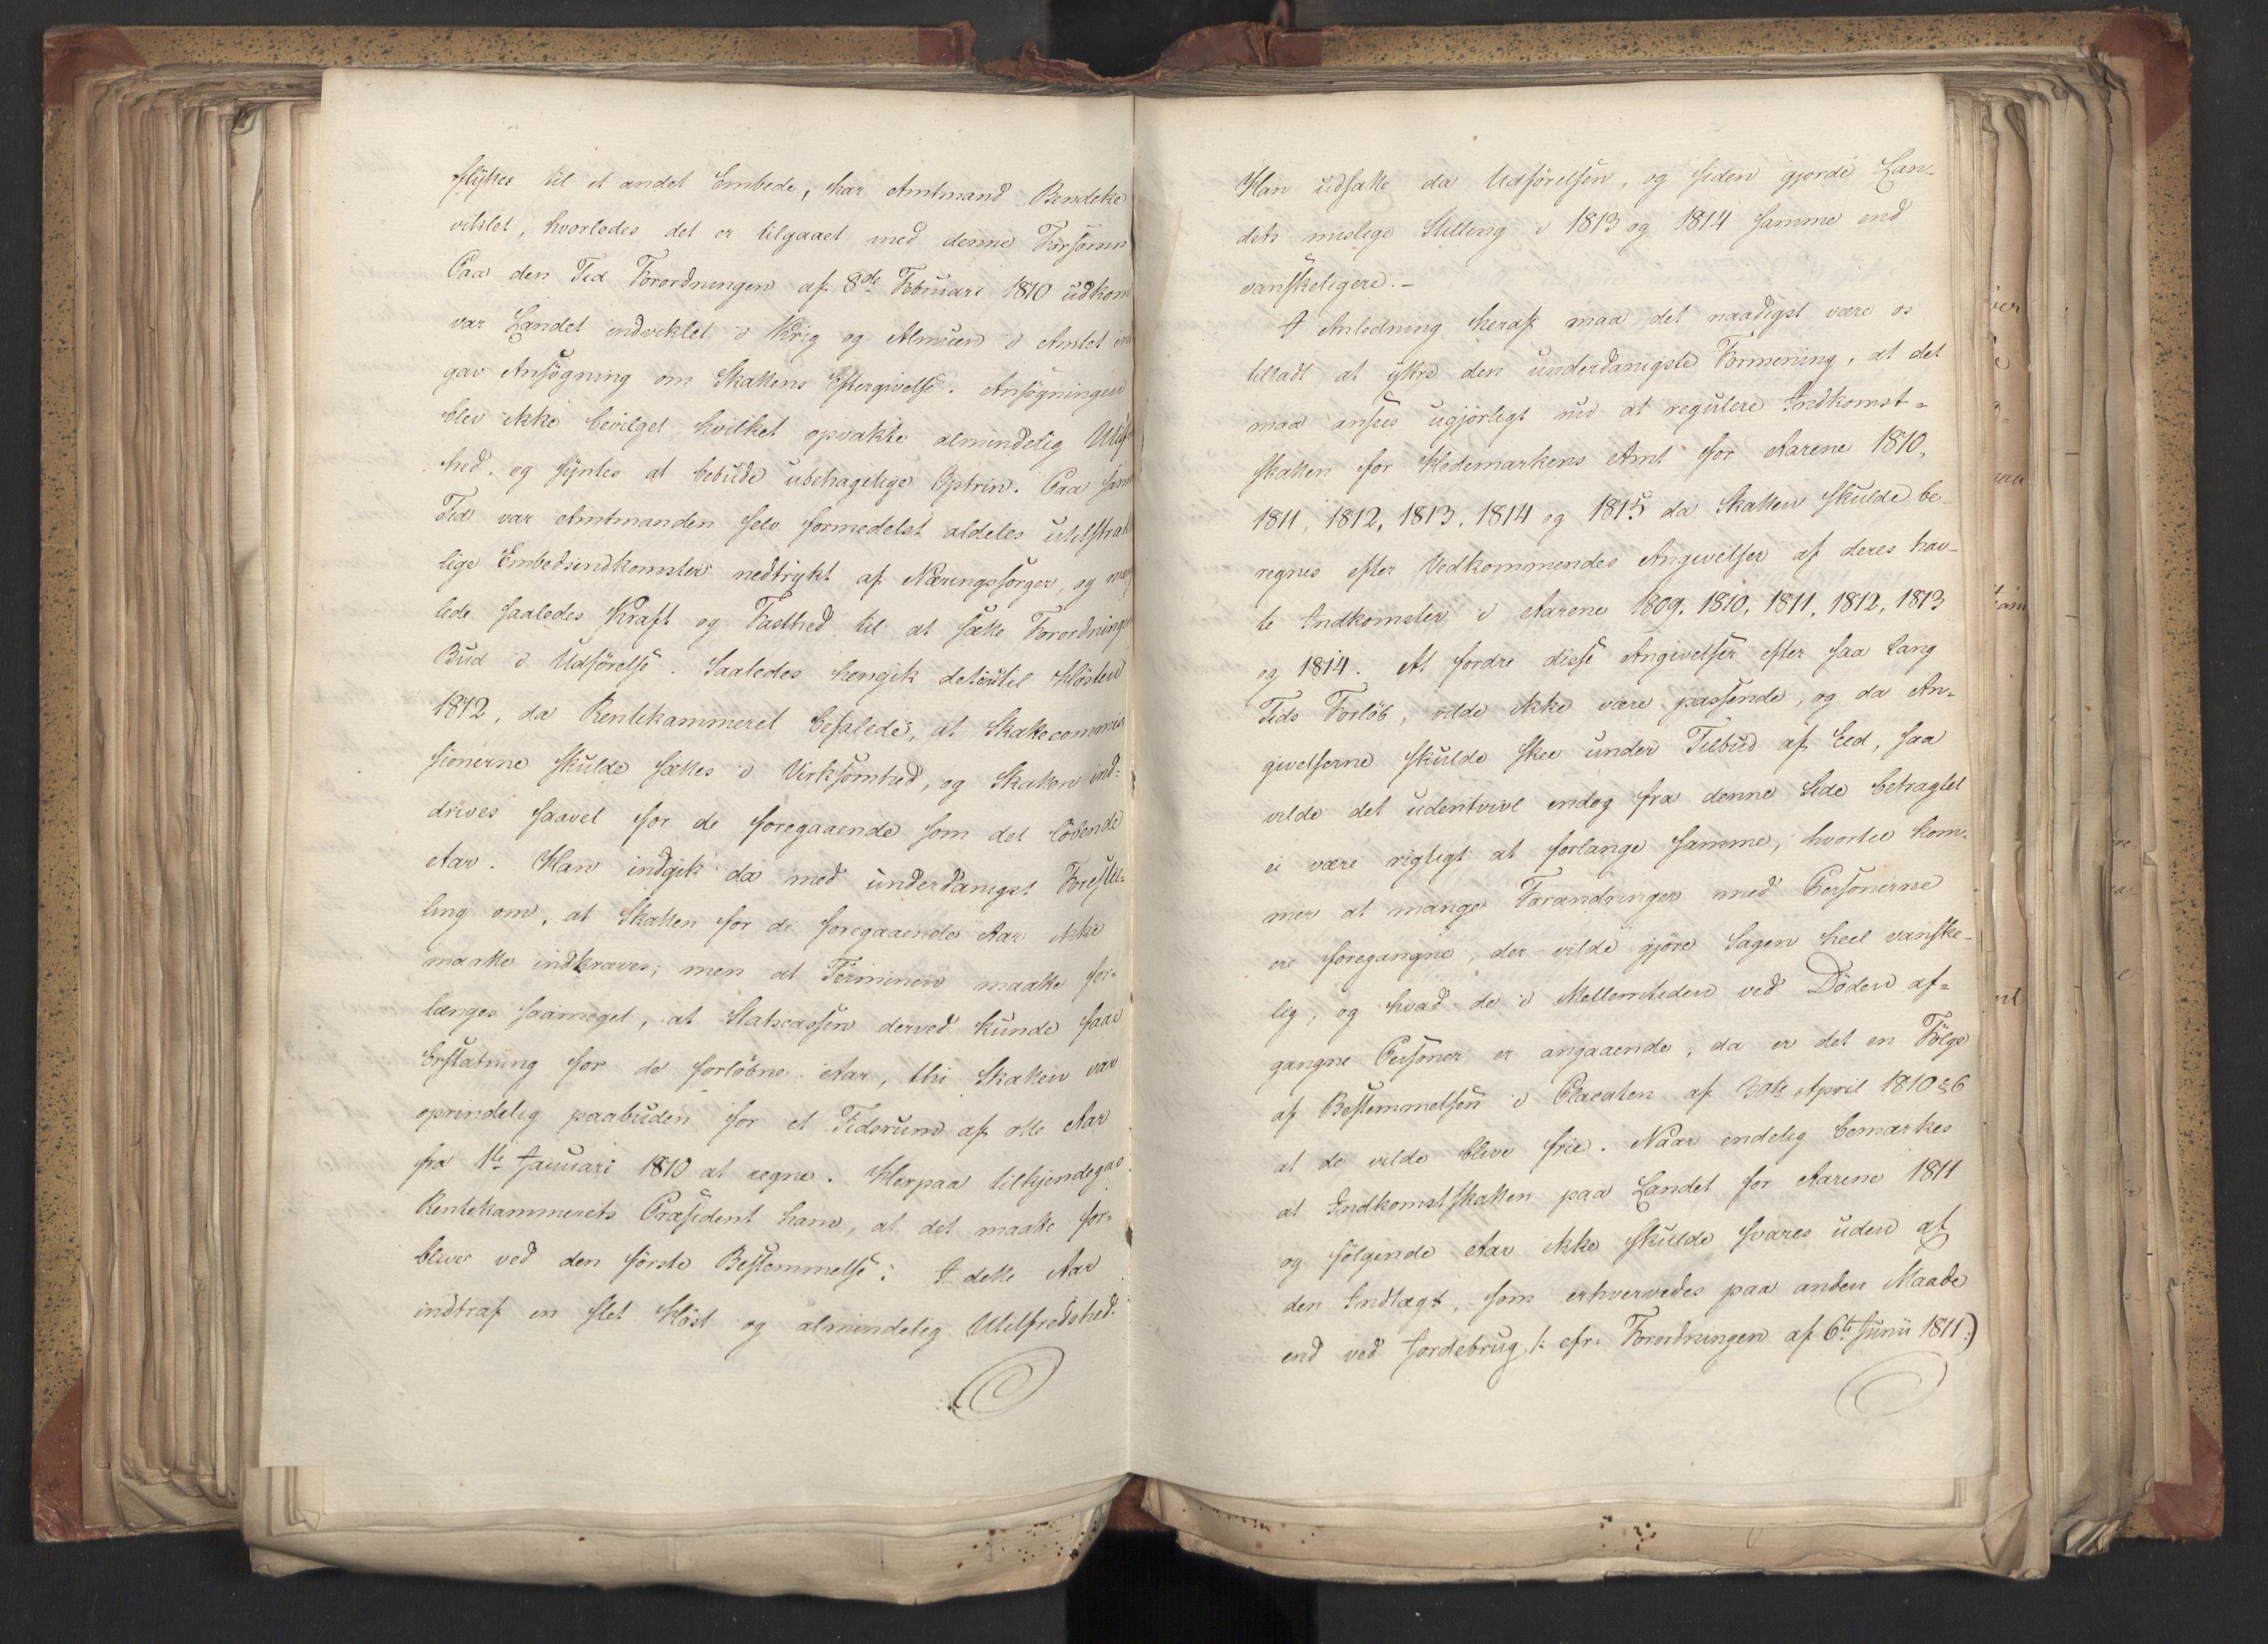 flyttes til et andet Embede, har Amtmand Bendeke
vitslet, hvorledes det er tilgaaet med denne Forsøm
Paa den Tid Forordningen af 8de Februari 1810 udkom
var Landet indviklet i Krig og Almuen i Amtet in
gav Ansøgning om Skattens Eftergivelse. Ansøgningen
blev ikke bevilget hvilket opvakte almindelig Utilf
hed, og syntes at bebude ubehagelige Optrin. Paa sam
Tid var Amtmanden selv formedelst aldeles utilstræk
lige Embedsindkomster nedtrykt af Næringssorger, og mag
lede saaledes Kraft og Fasthed til at sætte Forordninge
Bud i Udførelse. Saaledes hengik det indtil Høsten
1812, da Rentekammeret befalede, at Skattecommis
sionerne skulde sættes i Virksomhed, og Skatten ind-
drives saavel for de foregaaende som det løbende
Aar. Han indgik da med underdanigst Forestil-
ling om, at Skatten for de foregaaende Aar ikke
maatte indkræves; men at Terminen maatte for-
længes saameget, at Statscassen derved kunde faae
Erstatning for de forløbne Aar, thi Skatten var
oprindelig paabuden for et Tidsrum af otte Aar
fra 1te Januari 1810 at regne. Herpaa tilkjendegav
Rentekammerets Præsident ham, at det maatte for-
blive ved den første Bestemmelse. I dette Aar
indtraf en slet Høst og almindelig Utilfredshed.
Han udsatte da Udførelsen, og siden gjorde Lan-
dets mislige Stilling i 1813 og 1814 samme end
vanskeligere.-
I Anledning heraf maa det naadigst være os
tilladt at yttre den underdanigste Formening, at det
maa ansees ugjørligt nu at regulere Indkomst-
skatten for Hedemarkens Amt for Aarene 1810,
1811, 1812, 1813, 1814 og 1815 da Skatten skulde be-
regnes efter Vedkommendes Angivelser af deres hav-
te Indkomster i Aarene 1809, 1810, 1811, 1812, 1813
og 1814. At fordre disse Angivelser efter saa lang
Tids Forløb, vilde ikke være passende, og da An-
givelserne skulde skee under Tilbud af Eed, saa
vilde det udentvivl endog fra denne Side betragtet
ei være rigtigt at forlange samme, hvortil kom-
mer at mange Forandringer med Personerne
ere foregangne, der vilde gjøre Sagen heel vanske-
lig, og hvad de i Mellemtiden ved Døden af-
gangne Personer er angaaende, da er det en Følge
af Bestemmelsen i Placaten af 30te April 1810 § 6
at de vilde blive frie. Naar endelig bemærkes
at Indkomstskatten paa Landet for Aarene 1811
og følgende Aar ikke skulde svares uden af
den Indtægt, som erhvervedes paa anden Maade
end ved Jordebrug /: cfr. Forordningen af 6te Junii 1811:)